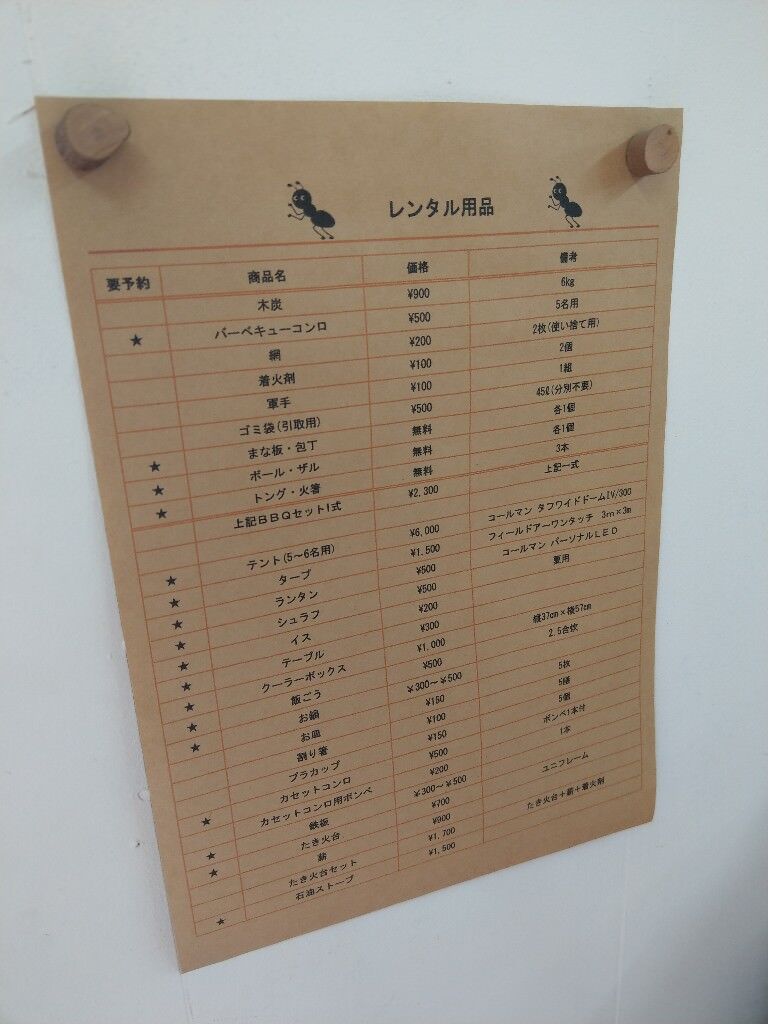 レンタル用品
要予約 商品名 価格 備考
木炭 ¥900 6kg
★ バーベキューコンロ ¥500 5名用
網 ¥200 2枚(使い捨て用)
着火剤 ¥100 2個
軍手 ¥100 1組
ゴミ袋(引取用) ¥500 45ℓ(分別不要)
★ まな板・包丁 無料 各1個
★ ボール・ザル 無料 各1個
★ トング・火箸 無料 3本
上記ＢＢＱセット1式 ¥2,300 上記一式
★ テント(5～6名用) ¥6,000 コールマン タフワイドドームⅣ/300
★ タープ ¥1,500 フィールドアーワンタッチ 3m×3m
★ ランタン ¥500 コールマン パーソナルＬＥＤ
★ シュラフ ¥500 夏用
★ イス ¥200
★ テーブル ¥300
★ クーラーボックス ¥1,000 縦37cm×横57cm
★ 飯ごう ¥500 2.5合炊
★ お鍋 ￥300～￥500
お皿 ¥150 5枚
割り箸 ¥100 5膳
プラカップ ¥150 5個
★ カセットコンロ ¥500 ボンベ1本付
カセットコンロ用ボンベ ¥200 1本
★ 鉄板 ￥300～￥500
★ たき火台 ¥700 ユニフレーム
薪 ¥900
たき火台セット ¥1,700 たき火台＋薪＋着火剤
★ 石油ストーブ ¥1,500